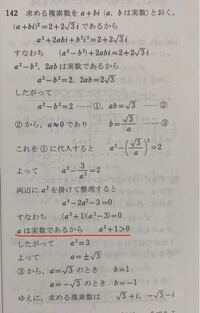 142 求める複素数を a+bi (a, b は実数) とおく。
(a+bi)²=2+2√3 i であるから
a²+2abi+b²i²=2+2√3 i
すなわち (a²−b²)+2abi=2+2√3 i
a²−b², 2ab は実数であるから
a²−b²=2, 2ab=2√3
したがって
a²−b²=2 ……①, ab=√3 ……②
②から, a≠0 であり b=√3/a ……③
これを①に代入すると a²−(√3/a)²=2
よって a²−3/a²=2
両辺に a² を掛けて整理すると
a⁴−2a²−3=0
すなわち (a²+1)(a²−3)=0
a は実数であるから a²+1>0
したがって a²=3
よって a=±√3
③から a=√3 のとき b=1
a=−√3 のとき b=−1
ゆえに, 求める複素数は √3+i, −√3−i